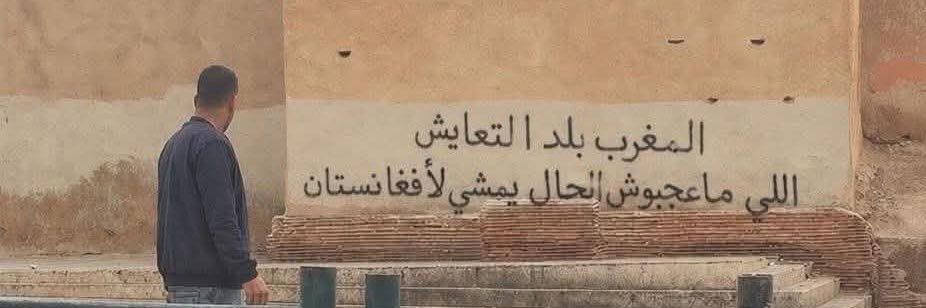 المغرب بلد التعايش
اللي ماعجبوش الحال يمشي لأفغانستان